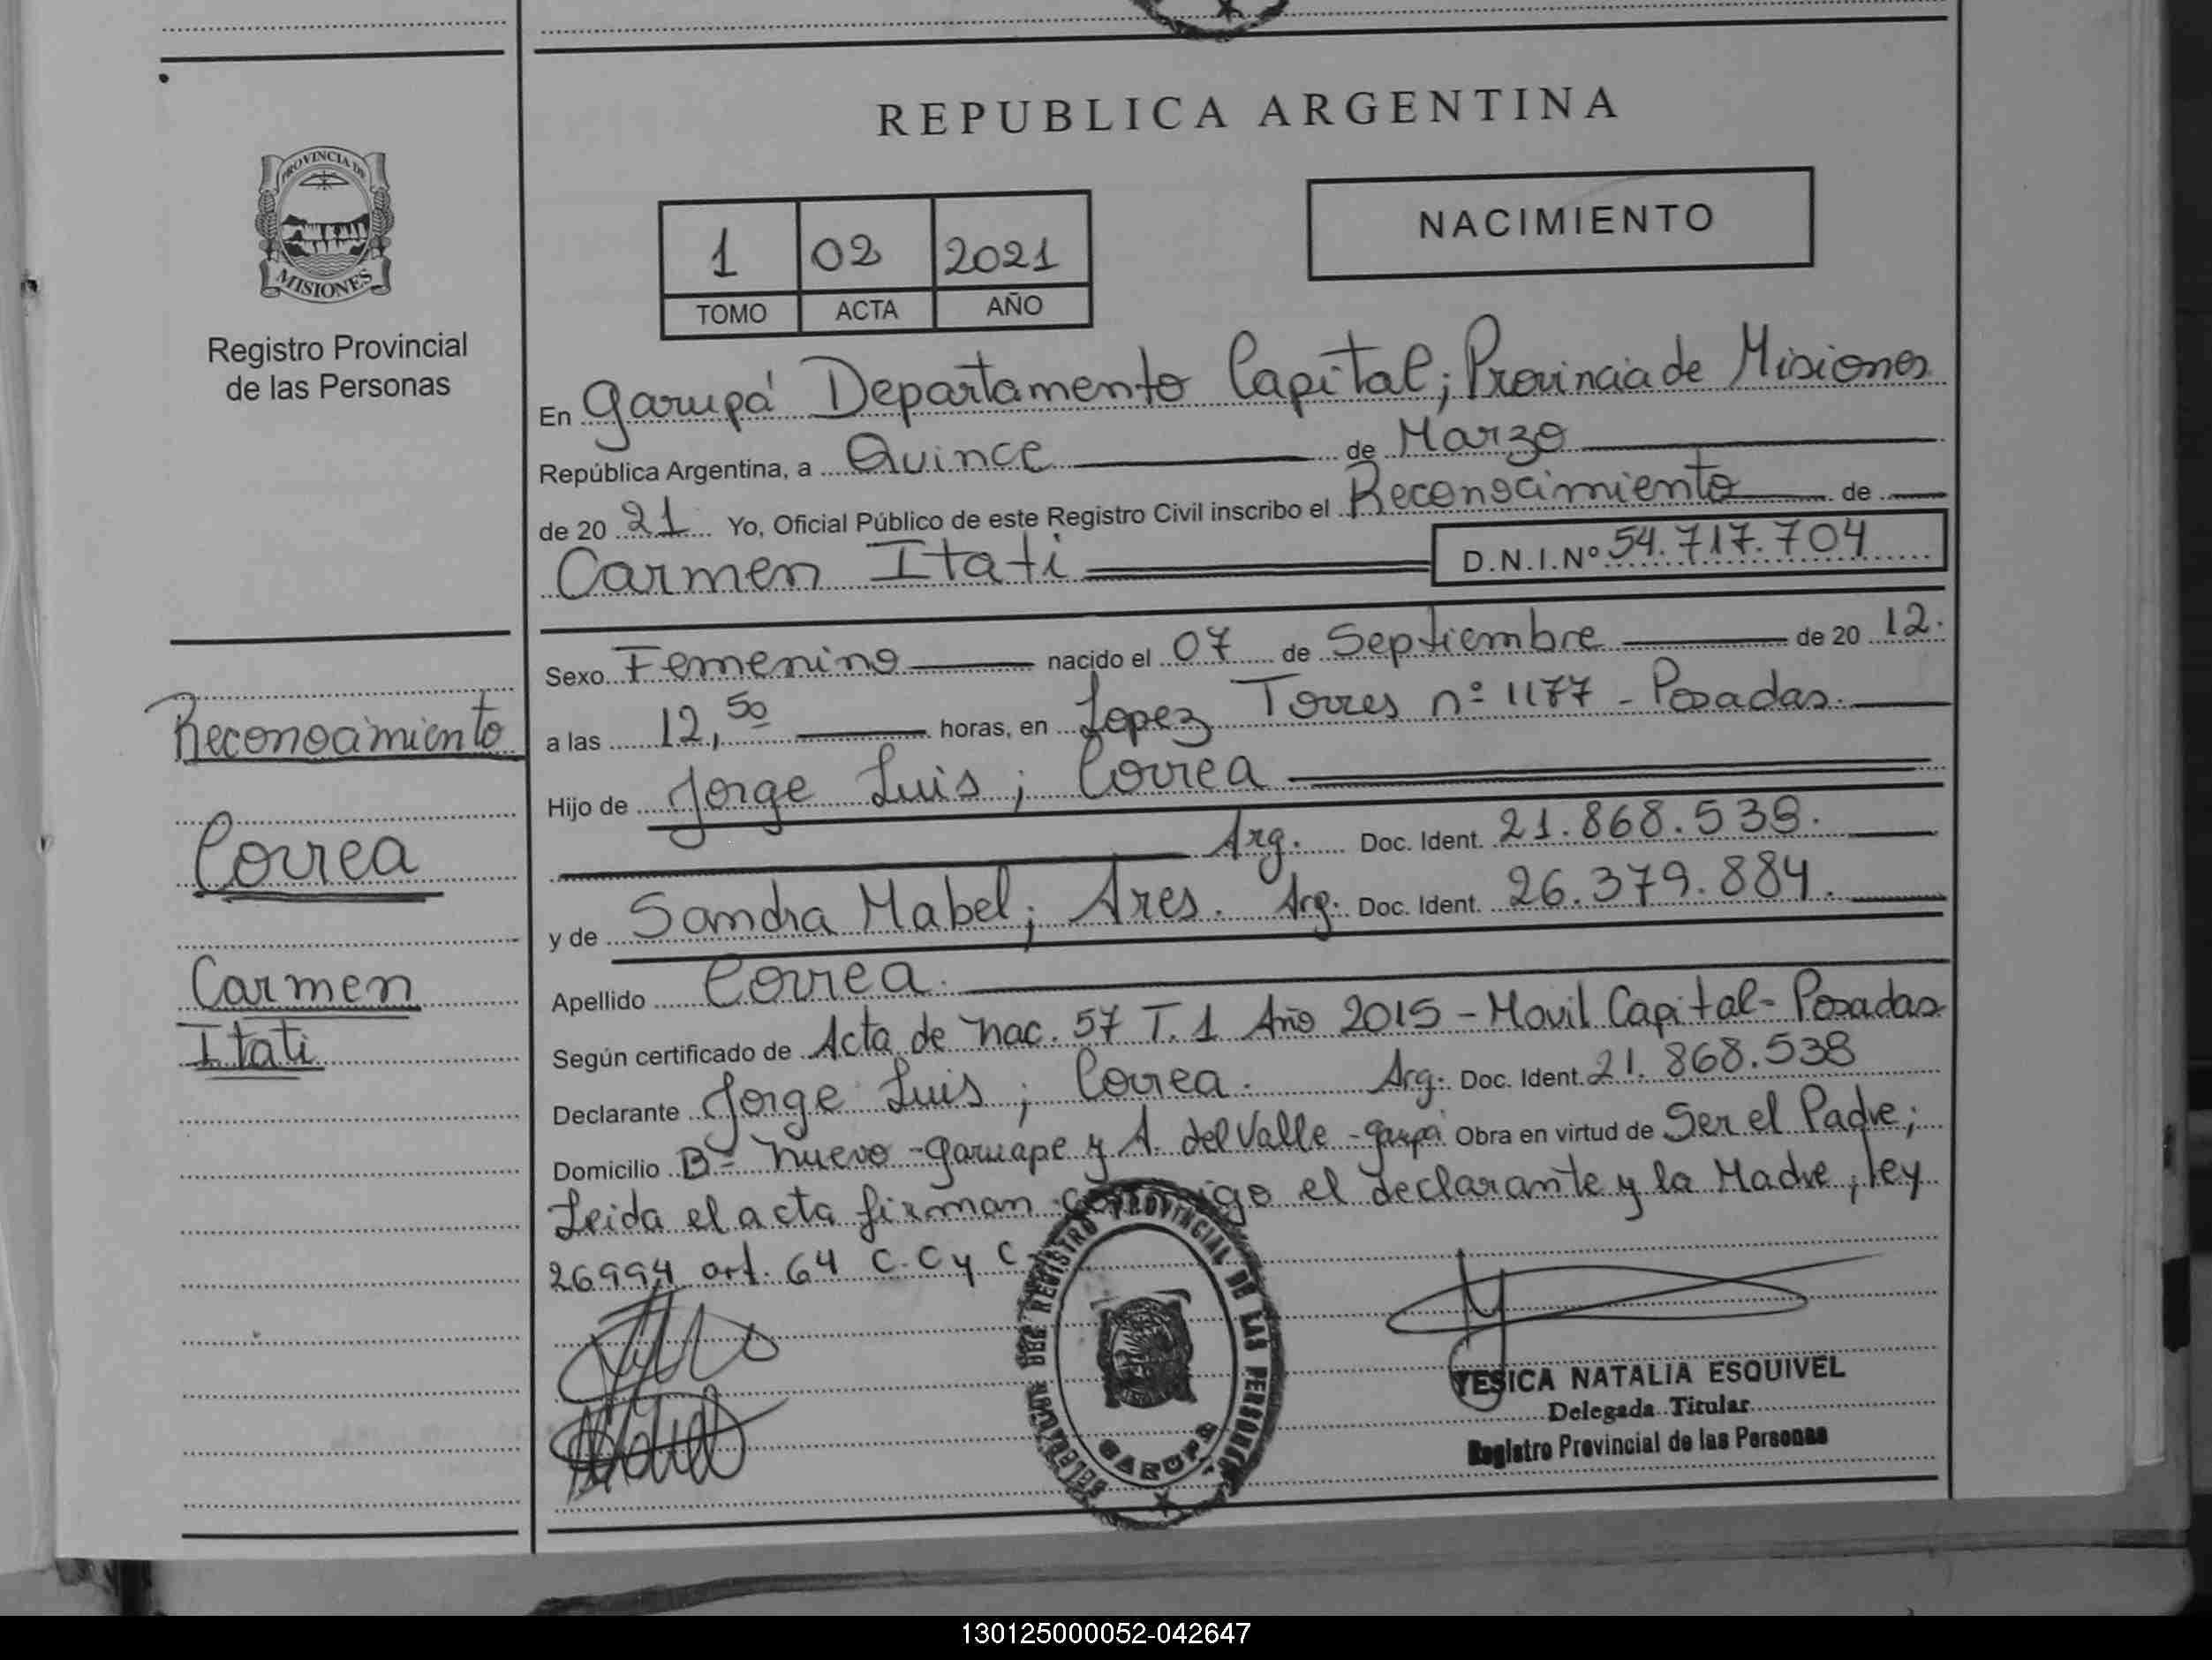 REPUBLICA ARGENTINA
PROVINCIA DE
MISIONES
Registro Provincial
de las Personas
1 02 2021
TOMO ACTA AÑO
NACIMIENTO
En Garupá Departamento Capital; Provincia de Misiones
República Argentina, a Quince de Marzo
de 20 21 Yo, Oficial Público de este Registro Civil inscribo el Reconocimiento de
Carmen Itati D.N.I.Nº 54.717.704
Sexo Femenino nacido el 07 de Septiembre de 20 12.
a las 12,50 horas, en Lopez Torres nº 1177 - Posadas.
Hijo de Jorge Luis; Correa
Arg. Doc. Ident. 21.868.538.
y de Sandra Mabel; Ares. Arg. Doc. Ident. 26.379.884.
Apellido Correa.
Según certificado de Acta de nac. 57 T. 1 Año 2015 - Movil Capital - Posadas
Declarante Jorge Luis; Correa. Arg. Doc. Ident. 21.868.538
Domicilio Bº nuevo - garuape y A. del Valle - garupá Obra en virtud de Ser el Padre;
Leida el acta firman conmigo el declarante y la Madre, ley
26994 art. 64 C.C y C
Reconocimiento
Correa
Carmen
Itati
DELEGACION DEL REGISTRO PROVINCIAL DE LAS PERSONAS
GARUPA
YESICA NATALIA ESQUIVEL
Delegada Titular
Registro Provincial de las Personas
130125000052-042647